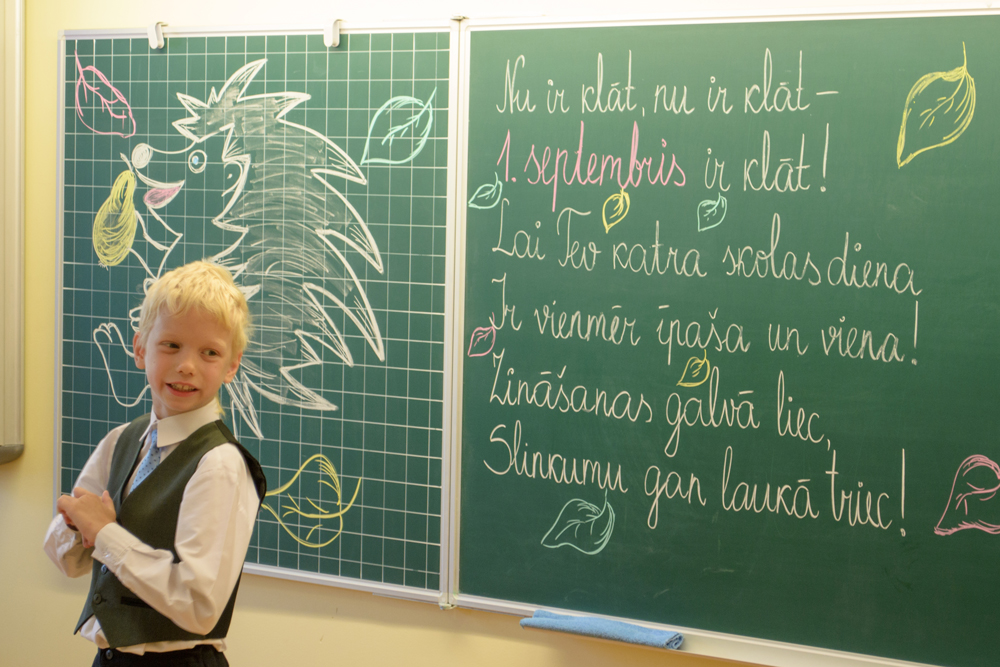 Nu ir klāt, nu ir klāt –
1. septembris ir klāt!
Lai Tev katra skolas diena
Ir vienmēr īpaša un viena!
Zināšanas galvā liec,
Slinkumu gan laukā triec!